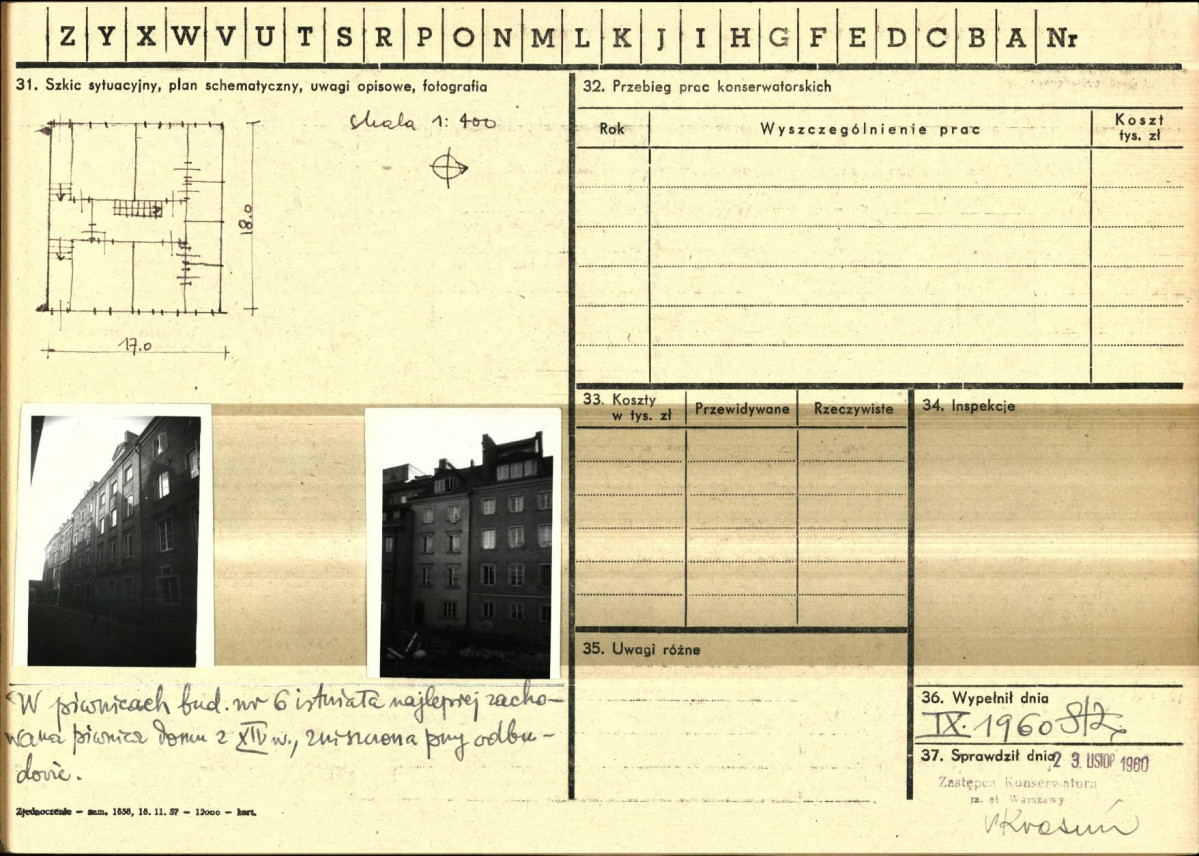 Z Y X W V U T S R P O N M L K J I H G F E D C B A Nr
31. Szkic sytuacyjny, plan schematyczny, uwagi opisowe, fotografia
skala 1:400
18.0
17.0
W piwnicach bud. nr 6 istniała najlepiej zacho-
wana piwnica domu z XIV w., zniszczona przy odbu-
dowie.
Zjednoczenie — zam. 1858, 16. 11. 57 — 12000 — kart.
32. Przebieg prac konserwatorskich
Rok Wyszczególnienie prac Koszt
tys. zł
33. Koszty
w tys. zł Przewidywane Rzeczywiste
34. Inspekcje
35. Uwagi różne
36. Wypełnił dnia
IX. 1960
37. Sprawdził dnia 2 3. LISTOP 1960
Zastępca Konserwatora
m. st. Warszawy